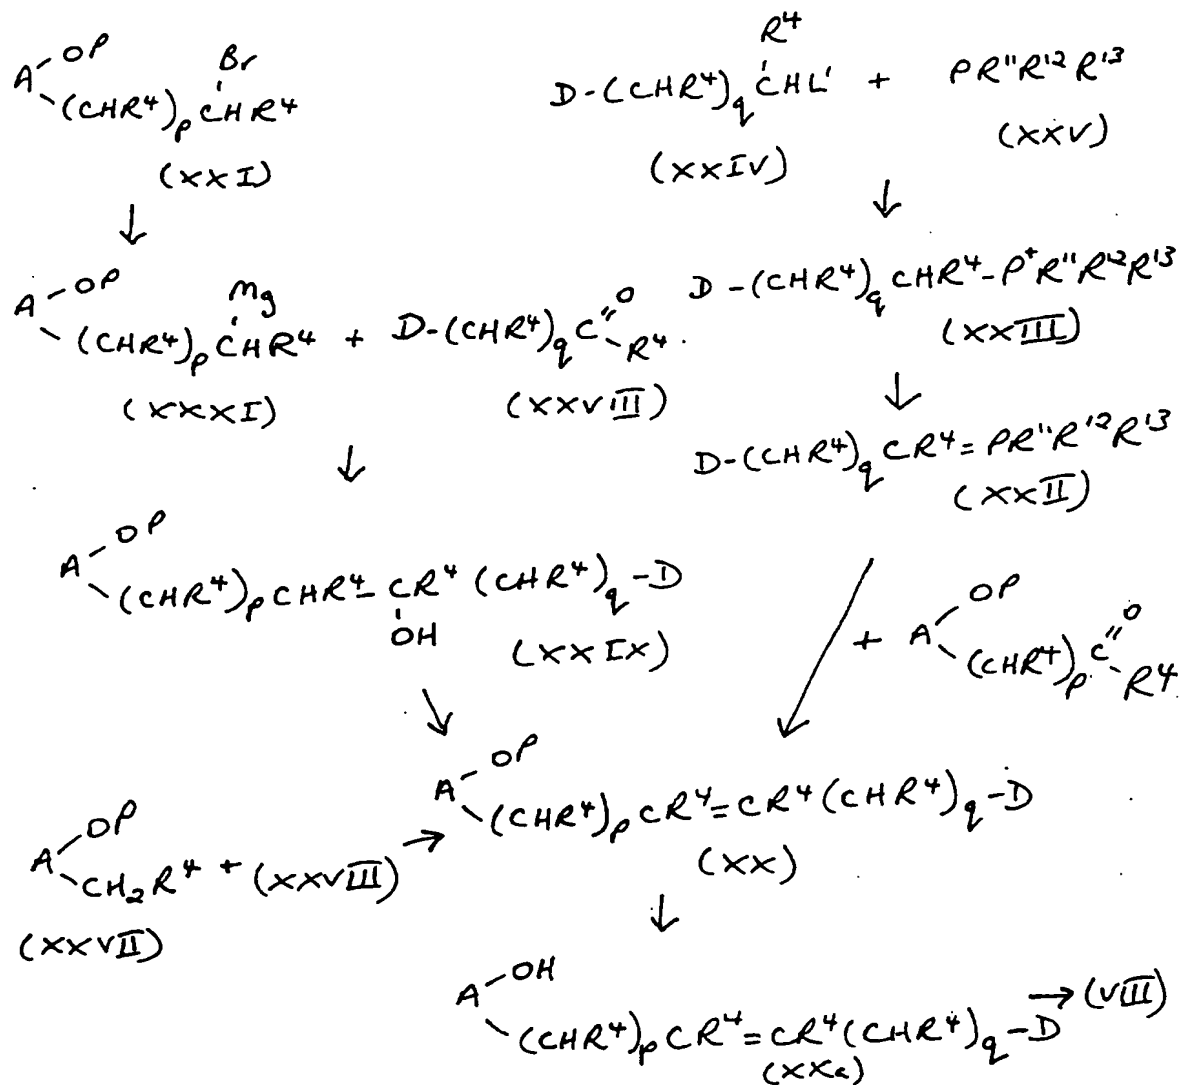 A-OP
(CHR⁴)ₚCHR⁴
Br
(XXI)
↓
A-OP
(CHR⁴)ₚCHR⁴
Mg
(XXXI)
+ D-(CHR⁴)qC=O
R⁴
(XXVIII)
↓
A-OP
(CHR⁴)ₚCHR⁴-CR⁴(CHR⁴)q-D
OH
(XXIX)
R⁴
D-(CHR⁴)qCHL' + PR¹¹R¹²R¹³
(XXIV) (XXV)
↓
D-(CHR⁴)qCHR⁴-P⁺R¹¹R¹²R¹³
(XXIII)
↓
D-(CHR⁴)qCR⁴=PR¹¹R¹²R¹³
(XXII)
+ A-OP
(CHR⁴)ₚC=O
R⁴
A-OP
CH₂R⁴ + (XXVIII) →
(XXVII)
A-OP
(CHR⁴)ₚCR⁴=CR⁴(CHR⁴)q-D
(XX)
↓
A-OH
(CHR⁴)ₚCR⁴=CR⁴(CHR⁴)q-D → (VIII)
(XXa)